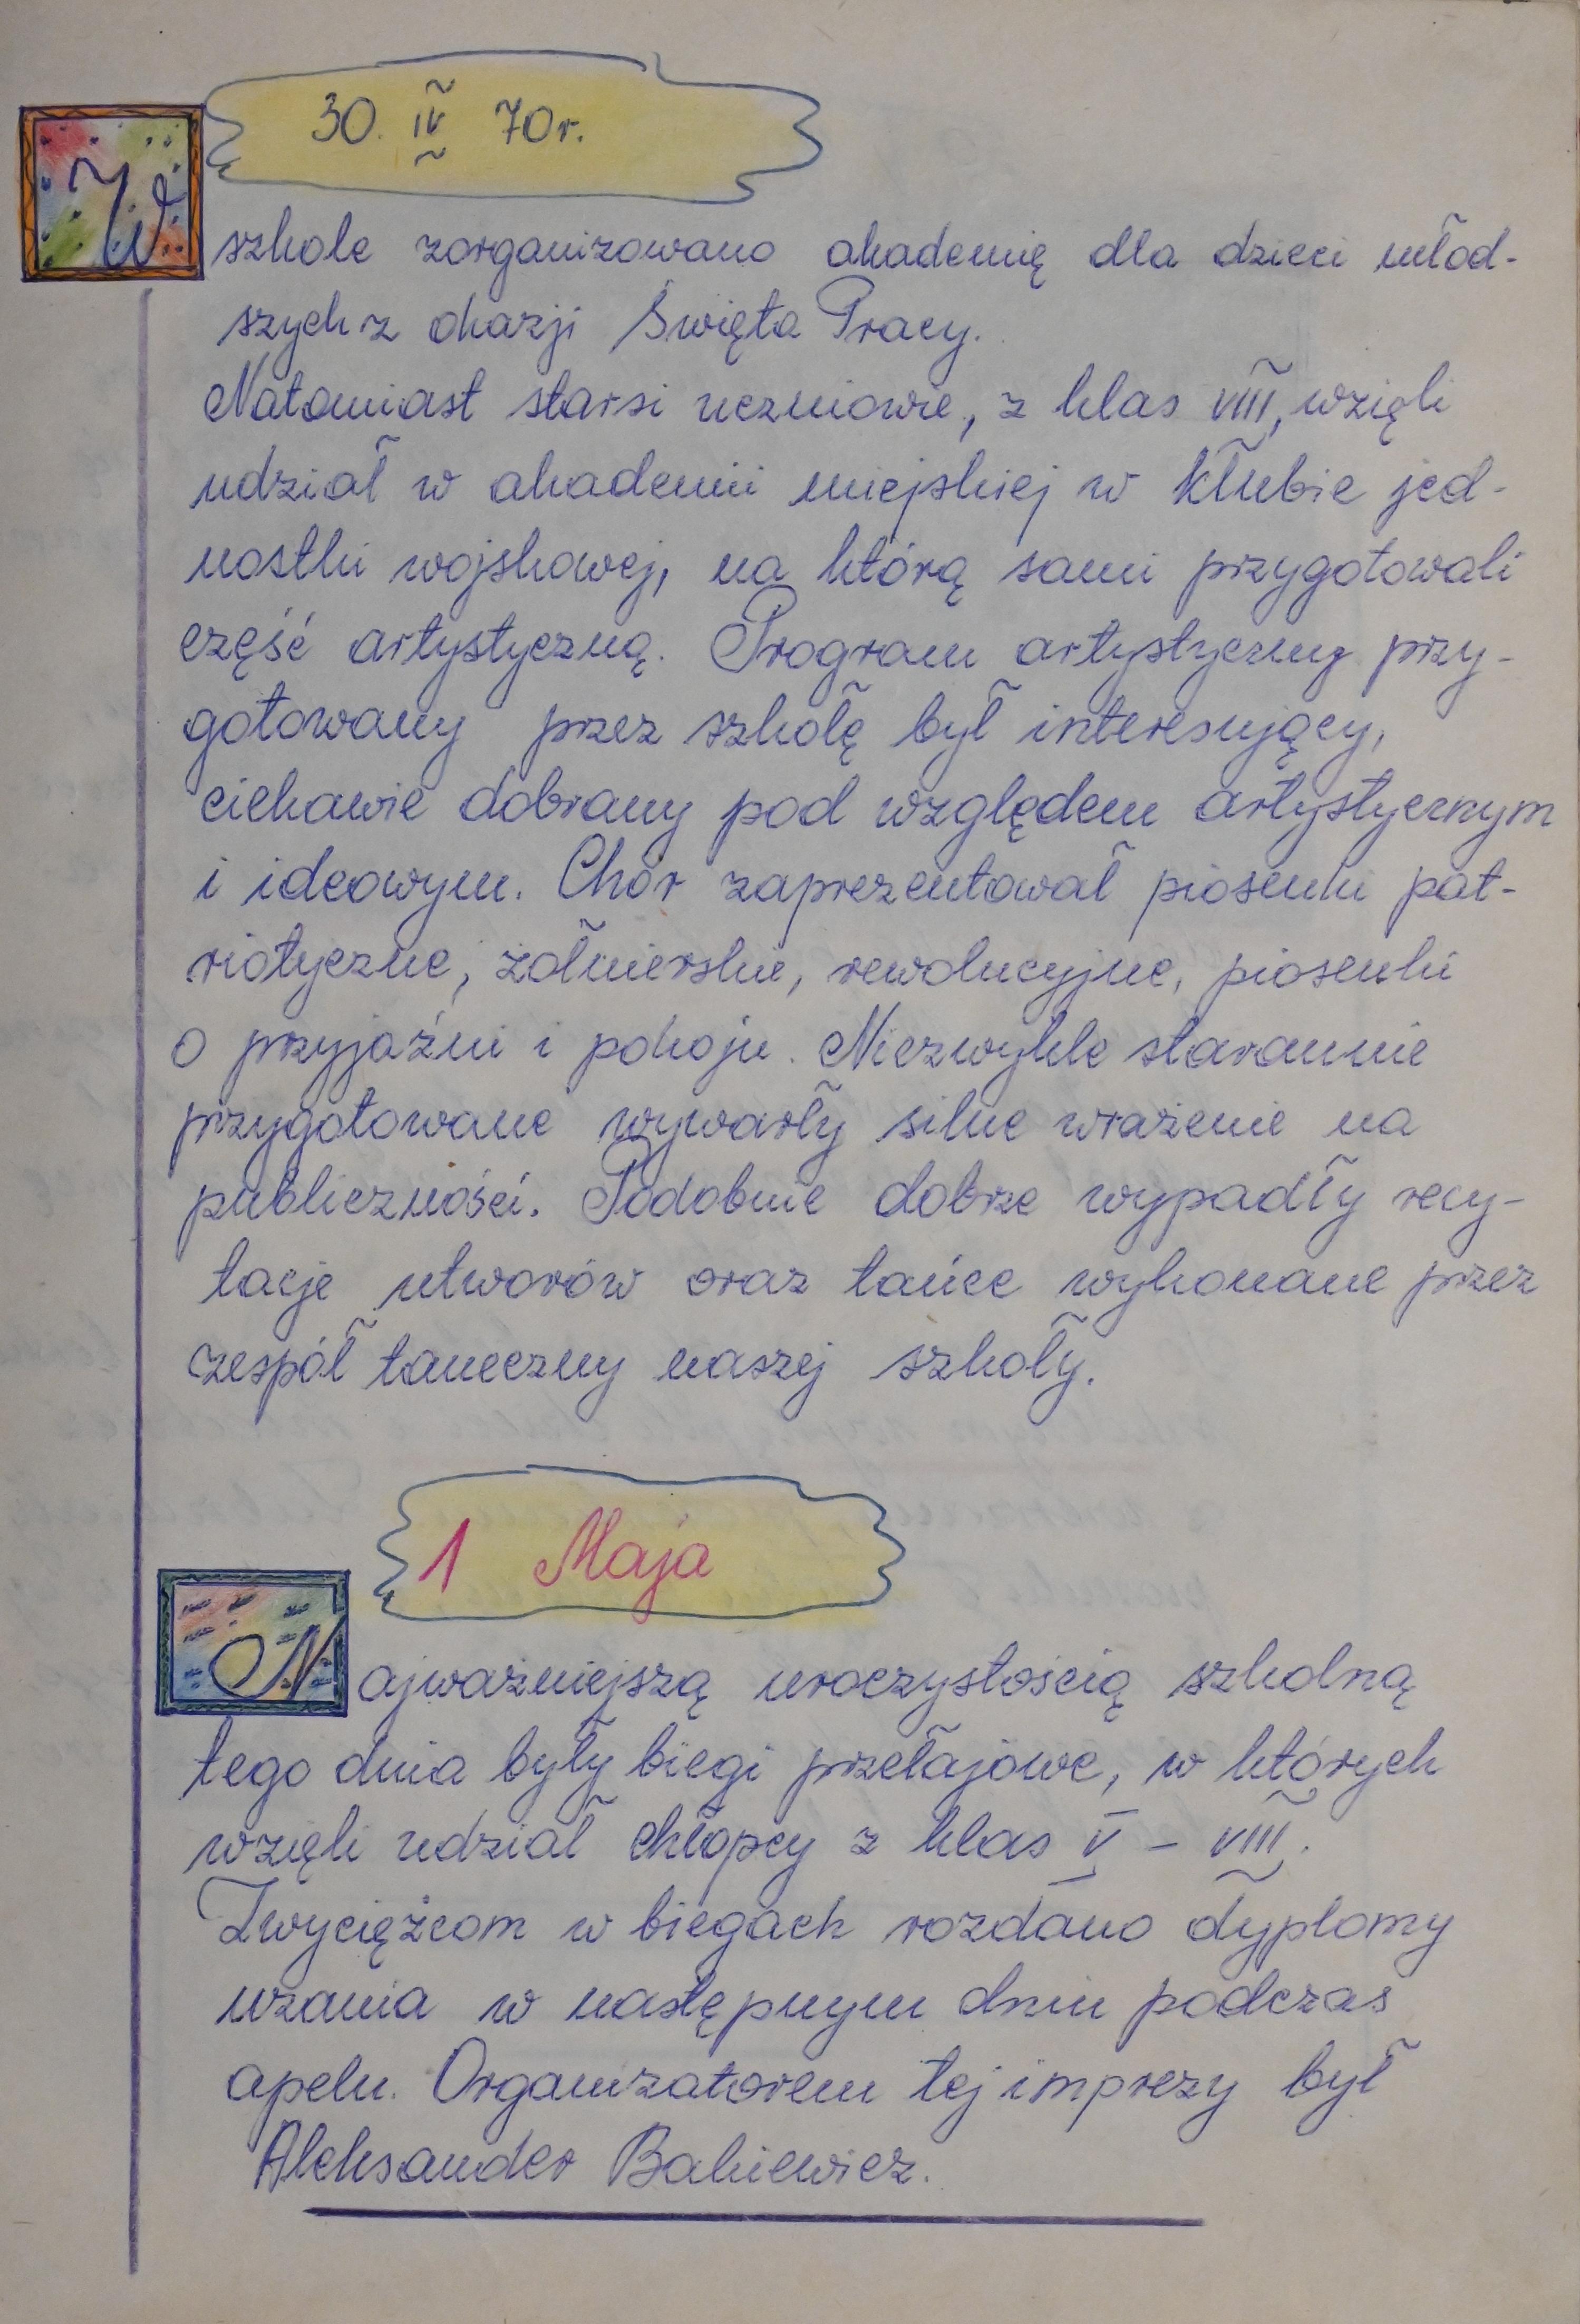 30. IV 70r.
W szkole zorganizowano akademię dla dzieci młod-
szych z okazji Święta Pracy.
Natomiast starsi uczniowie, z klas VIII, wzięli
udział w akademii miejskiej w klubie jed-
nostki wojskowej, na którą sami przygotowali
część artystyczną. Program artystyczny przy-
gotowany przez szkołę był interesujący,
ciekawie dobrany pod względem artystycznym
i ideowym. Chór zaprezentował piosenki pat-
riotyczne, żołnierskie, rewolucyjne, piosenki
o przyjaźni i pokoju. Niezwykle starannie
przygotowane wywarły silne wrażenie na
publiczności. Podobnie dobrze wypadły recy-
tacje utworów oraz tańce wykonane przez
zespół taneczny naszej szkoły.
1 Maja
Najważniejszą uroczystością szkolną
tego dnia były biegi przełajowe, w których
wzięli udział chłopcy z klas V – VIII.
Zwycięzcom w biegach rozdano dyplomy
uznania w następnym dniu podczas
apelu. Organizatorem tej imprezy był
Aleksander Bakiewicz.